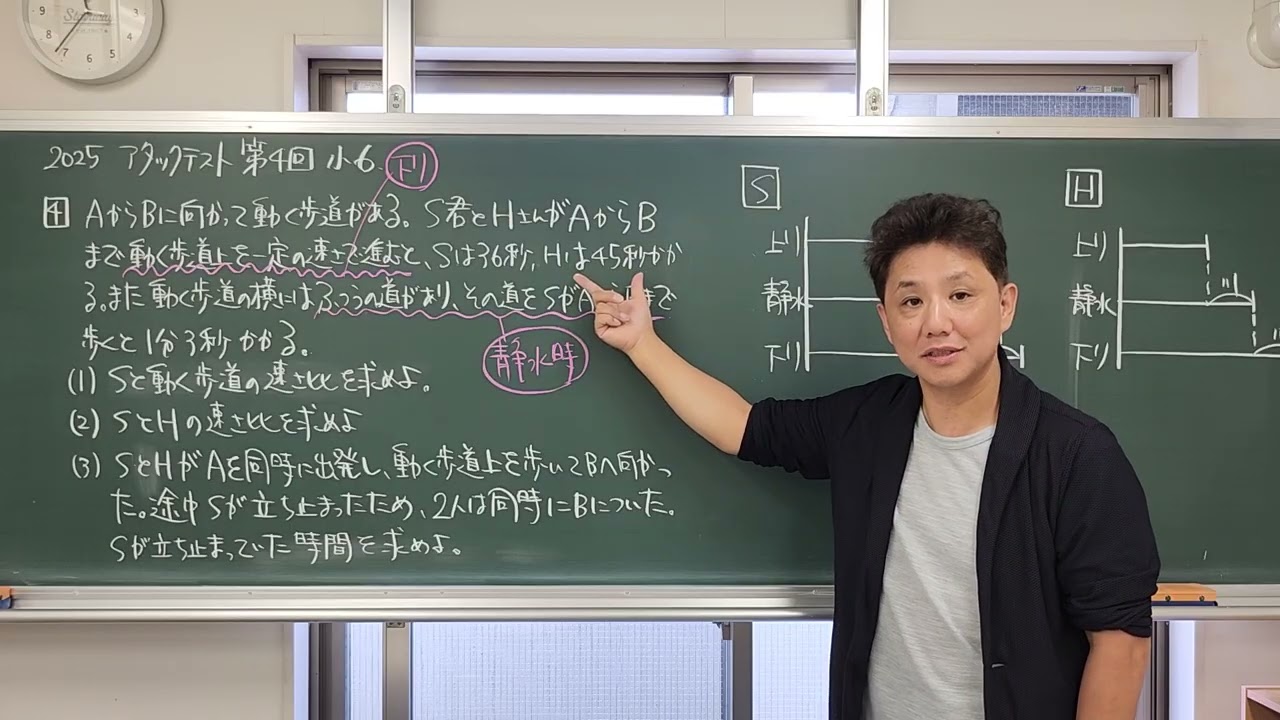 2025 アタックテスト 第4回 小6
下り
4 AからBに向かって動く歩道がある。S君とHさんがAからB
まで動く歩道上を一定の速さで進むと、Sは36秒、Hは45秒かか
る。また動く歩道の横にはふつうの道があり、その道をSがA まで
歩くと1分3秒かかる。
静水時
(1) Sと動く歩道の速さ比を求めよ。
(2) SとHの速さ比を求めよ
(3) SとHがAを同時に出発し、動く歩道上を歩いてBへ向かっ
た。途中Sが立ち止まったため、2人は同時にBについた。
Sが立ち止まっていた時間を求めよ。
S
上り
静水
下り
H
上り
静水
下り
9
8
7
6
5
4
3